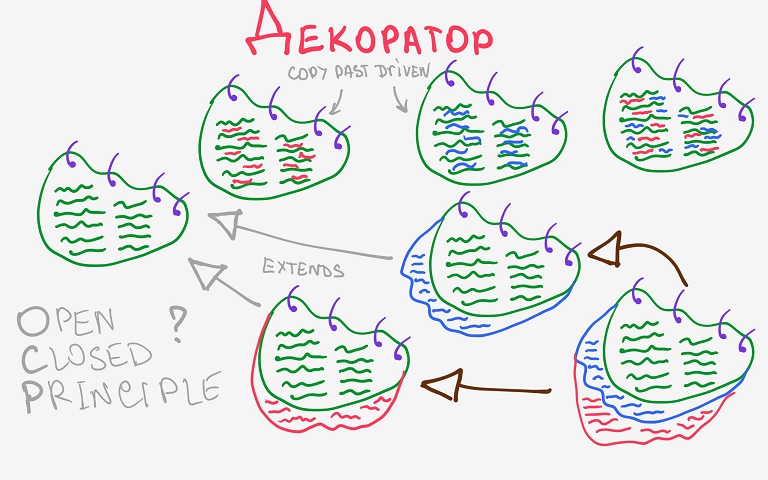 ДЕКОРАТОР
COPY PAST DRIVEN
EXTENDS
OPEN ?
CLOSED
PRINCIPLE